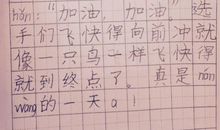 hǎn：“加油，加油。”选
手们飞快得向前冲就
像一只鸟一样飞快得
就到终点了。真是nán
wàng的一天a！